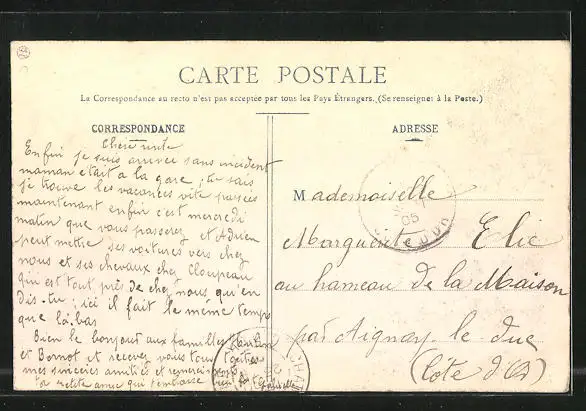 CARTE POSTALE
La Correspondance au recto n'est pas acceptée par tous les Pays Étrangers. (Se renseigner à la Poste.)
CORRESPONDANCE
Chère
Enfin je suis arrivée sans incident
maman était à la gare, tu sais
je trouve les vacances vite passées
maintenant enfin c'est mercredi
matin que vous passerez et Adrien
peut mettre ses voitures vers chez
nous et ses chevaux chez Cloupeau
qui est tout près de chez nous qu'en
dis-tu; ici il fait le même temps
que là-bas
Bien le bonjour aux familles
et Bornot et recevez vous tous
mes sincères amitiés et
ta petite amie qui t'embrasse
ADRESSE
Mademoiselle
Marguerite Elie
au hameau de la Maison
par Aignay-le-Duc
(Côte d'Or)
05